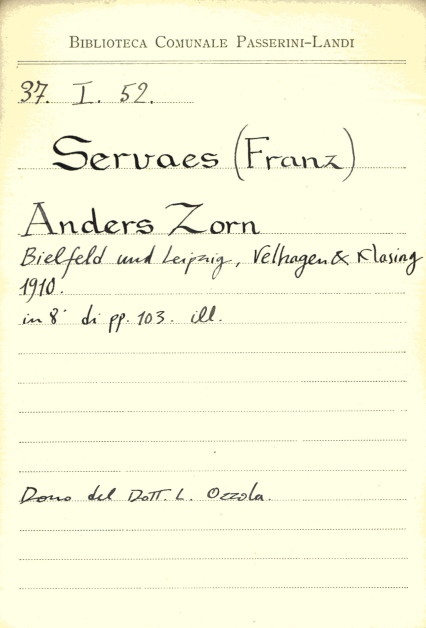 BIBLIOTECA COMUNALE PASSERINI-LANDI
37. I. 52.
Servaes (Franz)
Anders Zorn
Bielfeld und Leipzig, Velhagen & Klasing
1910.
in 8° di pp. 103. ill.
Dono del Dott. L. Ozzola.